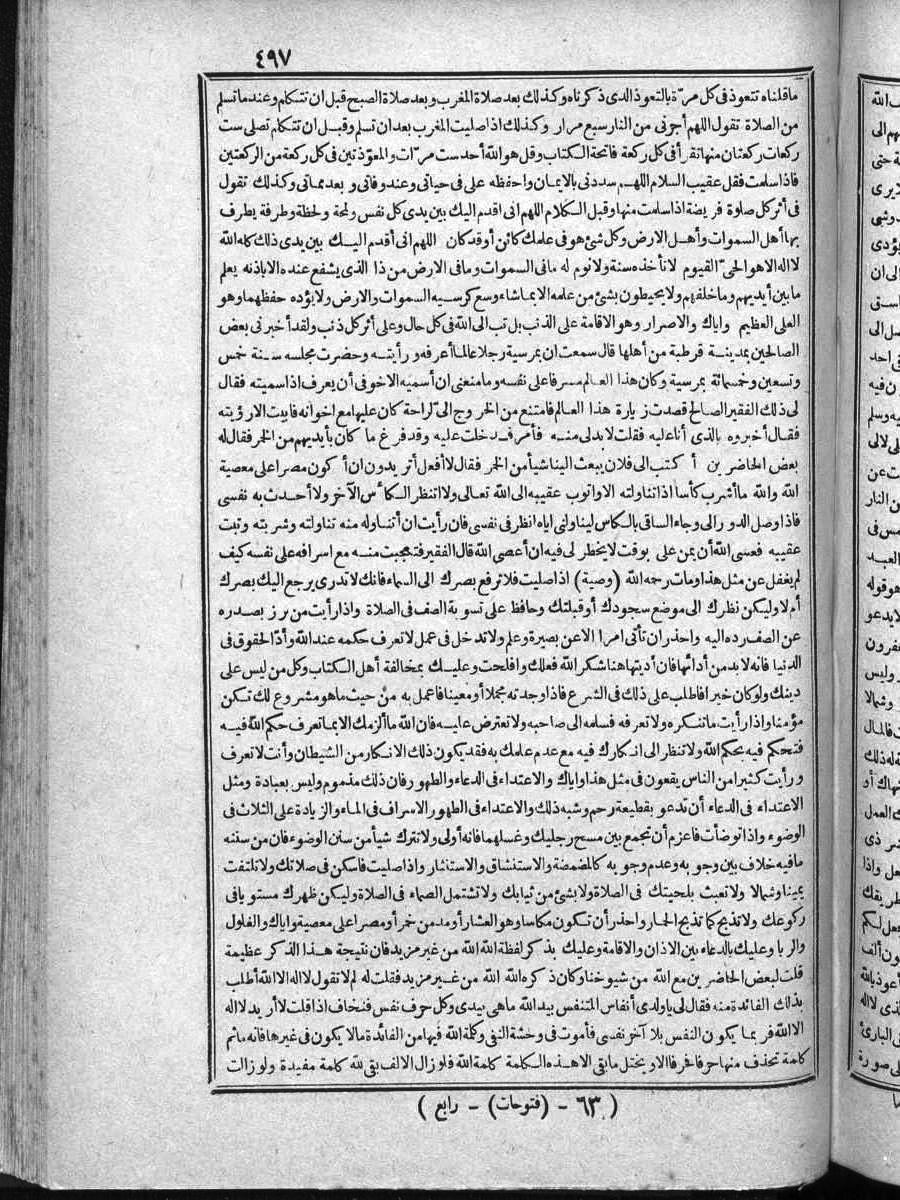 ٤٩٧
ماقلناه تتعوذ فى كل مرة بالتعوذ الذى ذكرناه وكذلك بعد صلاة المغرب وبعد صلاة الصبح قبل ان تتكلم وعند ما تسلم
من الصلاة تقول اللهم أجرنى من النار سبع مرار وكذلك اذا صليت المغرب بعد ان تسلم وقبل ان تتكلم تصلى ست
ركعات ركعتان منها تقرأ فى كل ركعة فاتحة الكتاب وقل هو الله أحد ست مرات والمعوذتين فى كل ركعة من الركعتين
فاذا سلمت فقل عقيب السلام اللهم سددنى بالايمان واحفظه على فى حياتى وعند وفاتى و بعد مماتى وكذلك تقول
فى أثر كل صلوة فريضة اذا سلمت منها وقبل الكلام اللهم انى اقدم اليك بين يدى كل نفس ولمحة ولحظة وطرفة يطرف
بها أهل السموات وأهل الارض وكل شئ هو فى علمك كائن أو قد كان اللهم انى أقدم اليك بين يدى ذلك كله الله
لا اله الا هو الحى القيوم لا تأخذه سنة ولا نوم له ما فى السموات وما فى الارض من ذا الذى يشفع عنده الا باذنه يعلم
ما بين أيديهم وما خلفهم ولا يحيطون بشئ من علمه الا بما شاء وسع كرسيه السموات والارض ولا يؤده حفظهما وهو
العلى العظيم واياك والاصرار وهو الاقامة على الذنب بل تب الى الله فى كل حال وعلى أثر كل ذنب ولقد أخبرنى بعض
الصالحين بمدينة قرطبة من أهلها قال سمعت ان بمرسية رجلا عالما أعرفه ورأيته وحضرت مجلسه سنة خمس
وتسعين وخمسمائة بمرسية وكان هذا العالم مسرفا على نفسه وما منعنى ان أسميه الا خوفى أن يعرف اذا سميته فقال
لى ذلك الفقير الصالح قصدت زيارة هذا العالم فامتنع من الخروج الى لراحة كان عليها مع اخوانه فابيت الا رؤيته
فقال أخبروه بالذى أنا عليه فقلت لا بد لى منه فأمر فدخلت عليه وقد فرغ ما كان بأيديهم من الخمر فقال له
بعض الحاضرين أكتب الى فلان يبعث الينا شيأ من الخمر فقال لا أفعل أتريدون ان أكون مصرا على معصية
الله والله ما أشرب كأسا اذا تناولته الا واتوب عقيبه الى الله تعالى ولا انتظر الكأس الآخر ولا أحدث به نفسى
فاذا وصل الدور الى وجاء الساقى بالكاس ليناولنى اياه انظر فى نفسى فان رأيت ان أتناوله منه تناولته وشربته وتبت
عقيبه فعسى الله أن يمن على بوقت لا يخطر لى فيه ان أعصى الله قال الفقير فتعجبت منه مع اسرافه على نفسه كيف
لم يغفل عن مثل هذا ومات رحمه الله (وصية) اذا صليت فلا ترفع بصرك الى السماء فانك لا تدرى يرجع اليك بصرك
أم لا وليكن نظرك الى موضع سجودك أو قبلتك وحافظ على تسوية الصف فى الصلاة واذا رأيت من برز بصدره
عن الصف رده اليه واحذر ان تأتى امرا الا عن بصيرة وعلم ولا تدخل فى عمل لا تعرف حكمه عند الله وأد الحقوق فى
الدنيا فانه لا بد من أدائها فان أديتها هنا شكر الله فعلك وافلحت وعليك بمخالفة أهل الكتاب وكل من ليس على
دينك ولو كان خيرا فاطلب على ذلك فى الشرع فاذا وجدته مجملا أو معينا فاعمل به من حيث ما هو مشروع لك تكن
مؤمنا واذا رأيت ما تنكره ولا تعرفه فسلمه الى صاحبه ولا تعترض عليه فان الله ما ألزمك الا بما تعرف حكم الله فيه
فتحكم فيه بحكم الله ولا تنظر الى انكارك فيه مع عدم علمك به فقد يكون ذلك الانكار من الشيطان وأنت لا تعرف
ورأيت كثيرا من الناس يقعون فى مثل هذا واياك والاعتداء فى الدعاء والطهور فان ذلك مذموم وليس بعبادة ومثل
الاعتداء فى الدعاء أن تدعو بقطيعة رحم وشبه ذلك والاعتداء فى الطهور الاسراف فى الماء والزيادة على الثلاث فى
الوضوء واذا توضأت فاعزم أن تجمع بين مسح رجليك وغسلهما فانه أولى ولا تترك شيأ من سنن الوضوء فان من سننه
ما فيه خلاف بين وجوبه وعدم وجوبه كالمضمضة والاستنشاق والاستنثار واذا صليت فاسكن فى صلاتك ولا تلتفت
يمينا وشمالا ولا تعبث بلحيتك فى الصلاة ولا بشئ من ثيابك ولا تشتمل الصماء فى الصلاة وليكن ظهرك مستويا فى
ركوعك ولا تذبح كما تذبح الحمار واحذر أن تكون مكاسا وهو العشار أو مدمن خمر أو مصرا على معصية واياك والغلول
والربا وعليك بالدعاء بين الاذان والاقامة وعليك بذكر لفظة الله الله من غير مزيد فان نتيجة هذا الذكر عظيمة
قلت لبعض الحاضرين مع الله من شيوخنا وكان ذكره الله الله من غير مزيد فقلت له لم لا تقول لا اله الا الله أطلب
بذلك الفائدة منه فقال لى يا ولدى أنفاس المتنفس بيد الله ما هى بيدى وكل حرف نفس فنخاف اذا قلت لا أريد لا اله
الا الله فربما يكون النفس بلا آخر نفسى فأموت فى وحشة النفى وكلمة الله فيها من الفائدة ما لا يكون فى غيرها فانه ما ثم
كلمة تحذف منها حرفا فحرفا الا ويختل ما بقى الا هذه الكلمة كلمة الله فلو زال الالف بقى لله كلمة مفيدة ولو زالت
( ٦٣ - (فتوحات) - رابع )